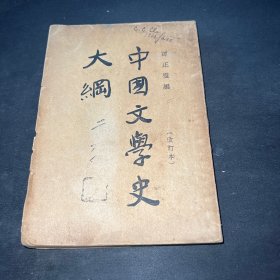 譚正璧編
中國文學史
大綱
（改訂本）